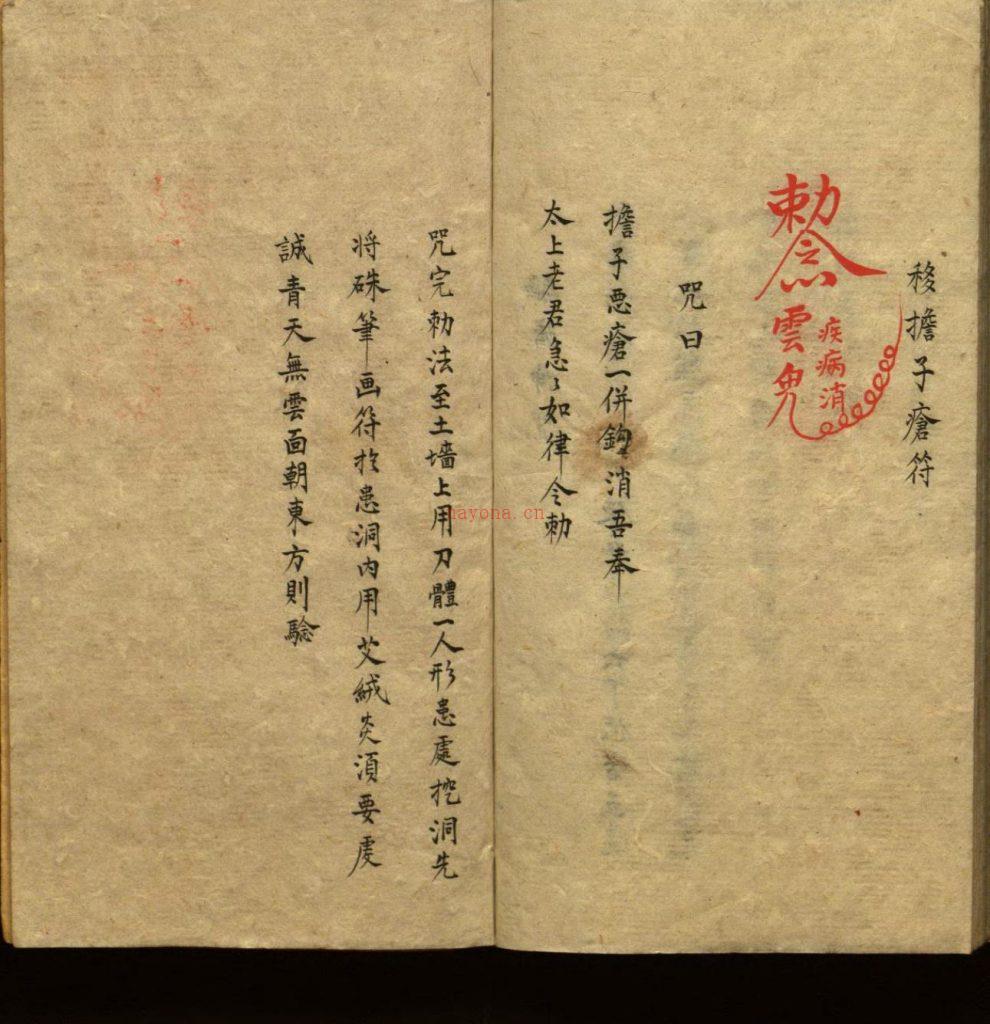 移擔子瘡符
勅令
疾病消
雲
咒曰
擔子惡瘡一併鈎消吾奉
太上老君急〻如律令勅
咒完勅法至土墻上用刀體一人形患處挖洞先
将硃筆画符於患洞内用艾絨炎須要虔
誠青天無雲面朝東方則驗
nayona.cn